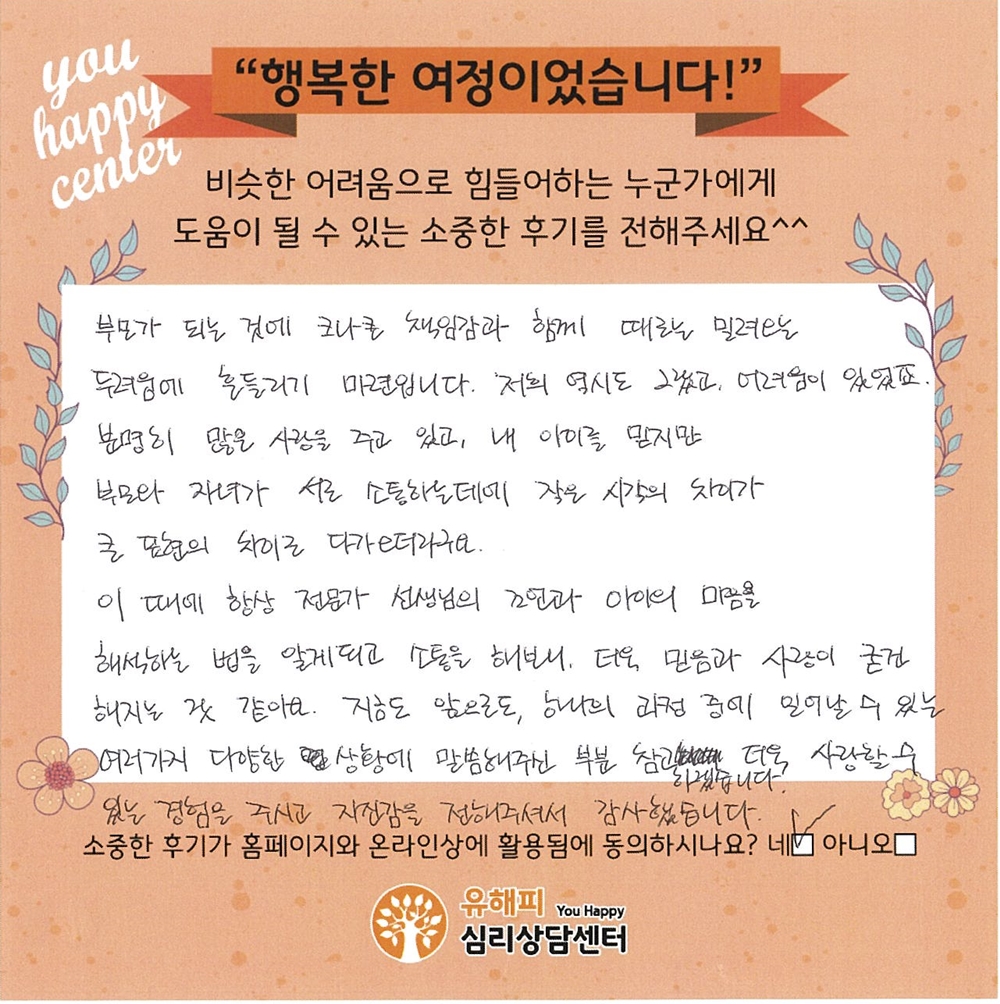 you
happy
center
“행복한 여정이었습니다!”
비슷한 어려움으로 힘들어하는 누군가에게
도움이 될 수 있는 소중한 후기를 전해주세요^^
부모가 되는 것에 크나큰 책임감과 함께 때로는 밀려오는
두려움에 흔들리기 마련입니다. 저희 역시도 그랬고, 어려움이 있었죠.
분명히 많은 사랑을 주고 있고, 내 아이를 믿지만
부모와 자녀가 서로 소통하는데에 작은 시각의 차이가
큰 표현의 차이로 다가오더라구요.
이 때에 항상 전문가 선생님의 조언과 아이의 마음을
해석하는 법을 알게되고 소통을 해보니, 더욱 믿음과 사랑이 굳건
해지는 것 같아요. 지금도 앞으로도, 하나의 과정 중에 일어날 수 있는
여러가지 다양한 상황에 말씀해주신 부분 참고 하겠습니다. 더욱 사랑할 수
있는 경험을 주시고 자신감을 전해주셔서 감사했습니다.
소중한 후기가 홈페이지와 온라인상에 활용됨에 동의하시나요? 네☑ 아니오☐
유해피 You Happy
심리상담센터